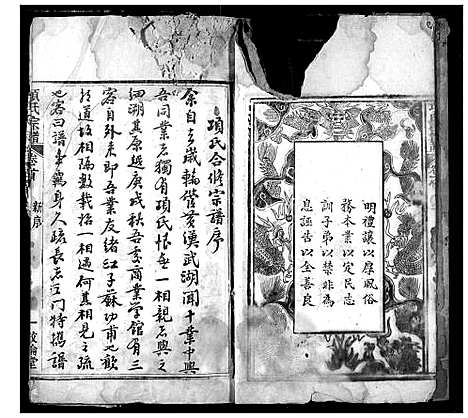 明禮讓以厚風俗
務本業以定民志
訓子弟以禁非為
息誣告以全善良
項氏合修宗譜序
余自去歲輪管黃漢武湖聞十業中與
吾同業者獨有項氏恨無一相親者與之
細溯其原越庚戌秋吾商業學館有三
客自外來即吾業友緒江子蘇功甫也歡
然道故相隔數載抬一相遇何其相見之疏
也客曰譜事羈身人疏長者江門特携譜
項氏宗譜
卷首
新序
一
敦倫堂